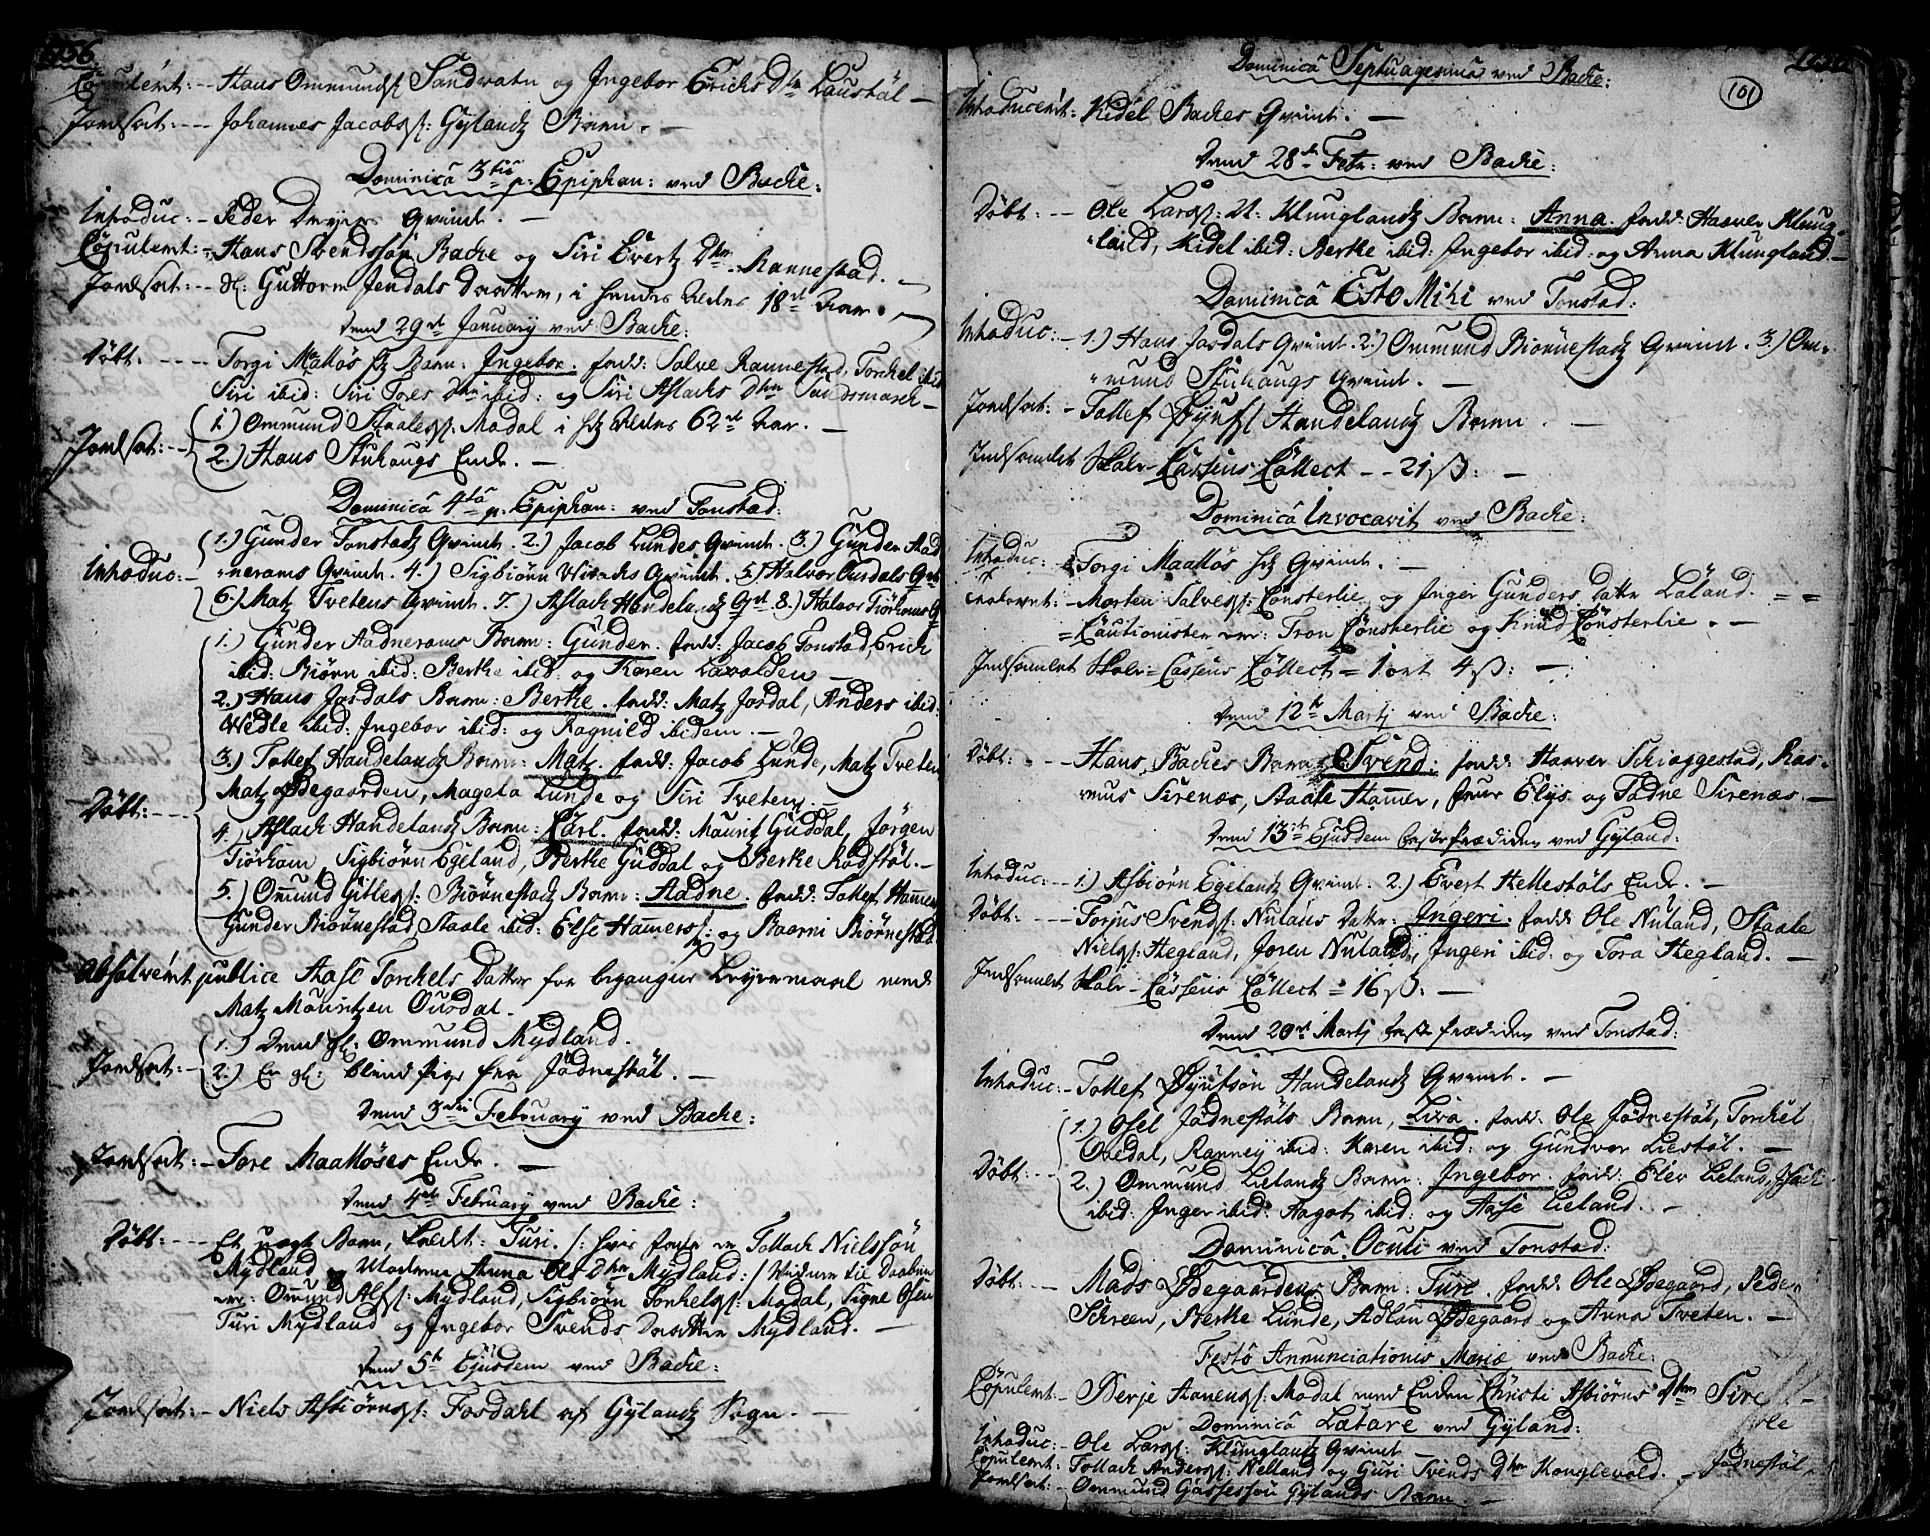 1756
Copuleret: - Hans Ommunds: Sandvatn og Ingebor Erichs Dtr Laustøl -
Jordfæst: - - Johannes Jacobs: Gylands Barn. -
Dominicâ 3tiâ p. Epiphan: ved Backe:
Introduc: - Peder Qvint. -
Copuleret: - Hans Svendssøn Backe og Siri Evertz Dtr Rannestad. -
Jordfæst: - - Sl: Guttorm Jendals Daatter, i hendes Alders 18de Aar. -
Dend 29de January ved Backe:
Døbt: - - - - Torgi Maakøs Barn: Ingebor. fadd: Salve Rannestad, Torchel ibid
Siri ibid: Siri Tores Dtr ibid: og Siri Aslachs Dtr Sandsmarck -
Jordfæst: - - 1.) Ommund Staales: Modal i hs Alders 62de Aar. -
2.) Hans Stuhougs Encke. -
Dominicâ 4tâ p. Epiphan: ved Tonstad:
Introduc: - 1.) Gunder Tonstads Qvint. 2.) Jacob Lundes Qvint. 3.) Gunder Aad
nerams Qvint. 4.) Sigbiørn Qvint. 5.) Halvor Ousdals
6.) Matz Tvetens Qvint. 7.) Aslach Handelands Qvt. 8.) Halvor Tiørhoms
1.) Gunder Aadnerams Barn: Gunder. fadd: Jacob Tonstad, Erich
ibid: Biørn ibid: Berthe ibid: og Karen Lavolden -
2.) Hans Josdals Barn: Berthe. fadd: Matz Josdal, Anders ibid:
Wedle ibid: Ingebor ibid: og Ragnild ibidem. -
3.) Tollef Handelands Barn: Matz. fadd: Jacob Lunde, Matz Tveten
Matz Ødegaarden, Magela Lunde og Siri Tveten. -
Døbt: - - - 4.) Aslach Handelands Barn: Carl. fadd: Maurits Guddal, Jørgen
Tiørhom, Sigbiørn Egeland, Berthe Guddal og Berthe Rødstøl. -
5.) Ommund Gitles: Biørnestads Barn: Aadne. fadd: Tollef Hammer
Gunder Biørnestad, Staale ibid: Else Hammers: og Baarni Biørnestad
Absolveret publice Aase Torchels Datter for begangen Leyermaal med
Matz Mouritzen Ousdal.
Jordfæst: - 1.) Dend sl: Ommund Mydland.
2.) En gl: blind pige fra Jødnestøl. -
Dend 3die February ved Backe:
Jordfæst: - Tore Maakøses Encke. -
Dend 4de February ved Backe:
Døbt: - - - Et uægte Barn, kaldet: Turi. /: hvis fader er Tollach Nielssøn
Mydland og Moderen Anna Ols Dtr Mydland: / Vidner til Daaben
er: Ommund Alfs: Mydland, Sigbiørn Torchels: Modal, Signe Osen
Turi Mydland og Ingebor Svends Daatter Mydland. -
Dend 5te Ejusdem ved Backe:
Jordfæst: - Niels Asbiørns: Fosdahl af Gylands Sogn. -
101
Dominicâ Septuagesimâ ved Backe:
Introduceret: Kidel Backes Qvint. -
Dend 28de Febr: ved Backe:
Døbt: - - Ole Lars: N: Klunglands Barn: Anna. fadd: Haaver Klung-
land, Kidel ibid: Berthe ibid: Ingebor ibid: og Anna Klungland -
Dominicâ Esto Mihi ved Tonstad:
Introduc: - 1.) Hans Josdals Qvint. 2.) Ommund Biørnestads Qvint. 3.) Om-
mund Stuhougs Qvint. -
Jordfæst: - Tollef Øyuls: Handelands Barn. -
Indsamlet Skole-Cassens Collect - - 21 ß: -
Dominicâ Invocavit ved Backe:
Introduc: Torgi Maakøs hs Qvint. -
Trolovet: - Morten Salves: Cønsterlie og Inger Gunders Datter Løland. = =
= Cautionister er: Tron Cønsterlie og Knud Cønsterlie. -
Indsamlet Skole-Cassens Collect = 1 ort 4 ß: -
Dend 12te Martj ved Backe:
Døbt: - - Hans Backes Barn Svend: fadd: Haaver Schiaggestad, Ras-
mus Sirenæs, Staale Hammer, Elys og Tadne Sirenæs. -
Dend 13de Ejusdem Fasteprædicken ved Gyland:
Introduc: - - 1.) Asbiørn Egelands Qvint. 2.) Evert Hellestøls Encke. -
Døbt: - - - Torjus Svends: Nulans Datter: Ingeri. fadd: Ole Nuland, Staale
Niels: Hegland, Joren Nuland, Ingeri ibid: og Tora Hegland. -
Indsamlet Skole-Cassens Collect = 16 ß: -
Dend 20de Martj Fasteprædicken ved Tonstad:
Introduc: - Tollef Øyulsøn Handelands Qvint. -
Døbt: - - 1.) Osel Jødnestøls Barn, Liva. fadd: Ole Jødnestøl, Torchel
Ovedal, Ranney ibid: Karen ibid: og Gundvor Liestøl. -
2.) Ommund Lielands Barn: Ingebor. fadd: Elev Lieland, Isach
ibid: Inger ibid: Aagot ibid: og Aase Lieland. -
Dominicâ Oculi ved Tonstad:
Døbt: - - Mads Ødegaardens Barn: Ture. fadd: Ole Ødegaard, Peder
Schreen, Berthe Lunde, Adlau Ødegaard og Anna Tveten. -
Festo Annunciationis Mariæ ved Backe:
Copuleret: - Berje Aanens: Modal med Enken Christi Asbiørns Dtr Sire
Dominicâ Lætare ved Gyland:
Introduc: - Ole Lars: Klunglands Qvint -
Copuleret: Tollach Anders: Nelland og Guri Svends Dtr Konglevold. - Jødnestøl
Jordfæst: - Ommund Gassessøn Gylands Barn. -